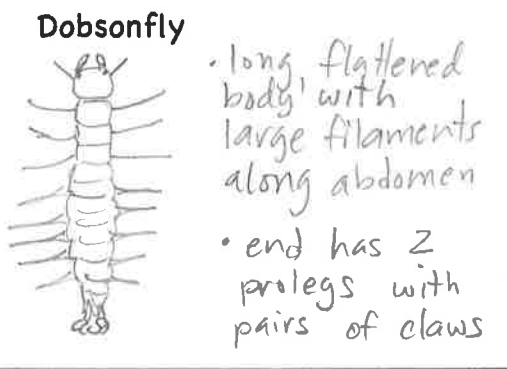 Dobsonfly
• long flattened
body with
large filaments
along abdomen
• end has 2
prolegs with
pairs of claws